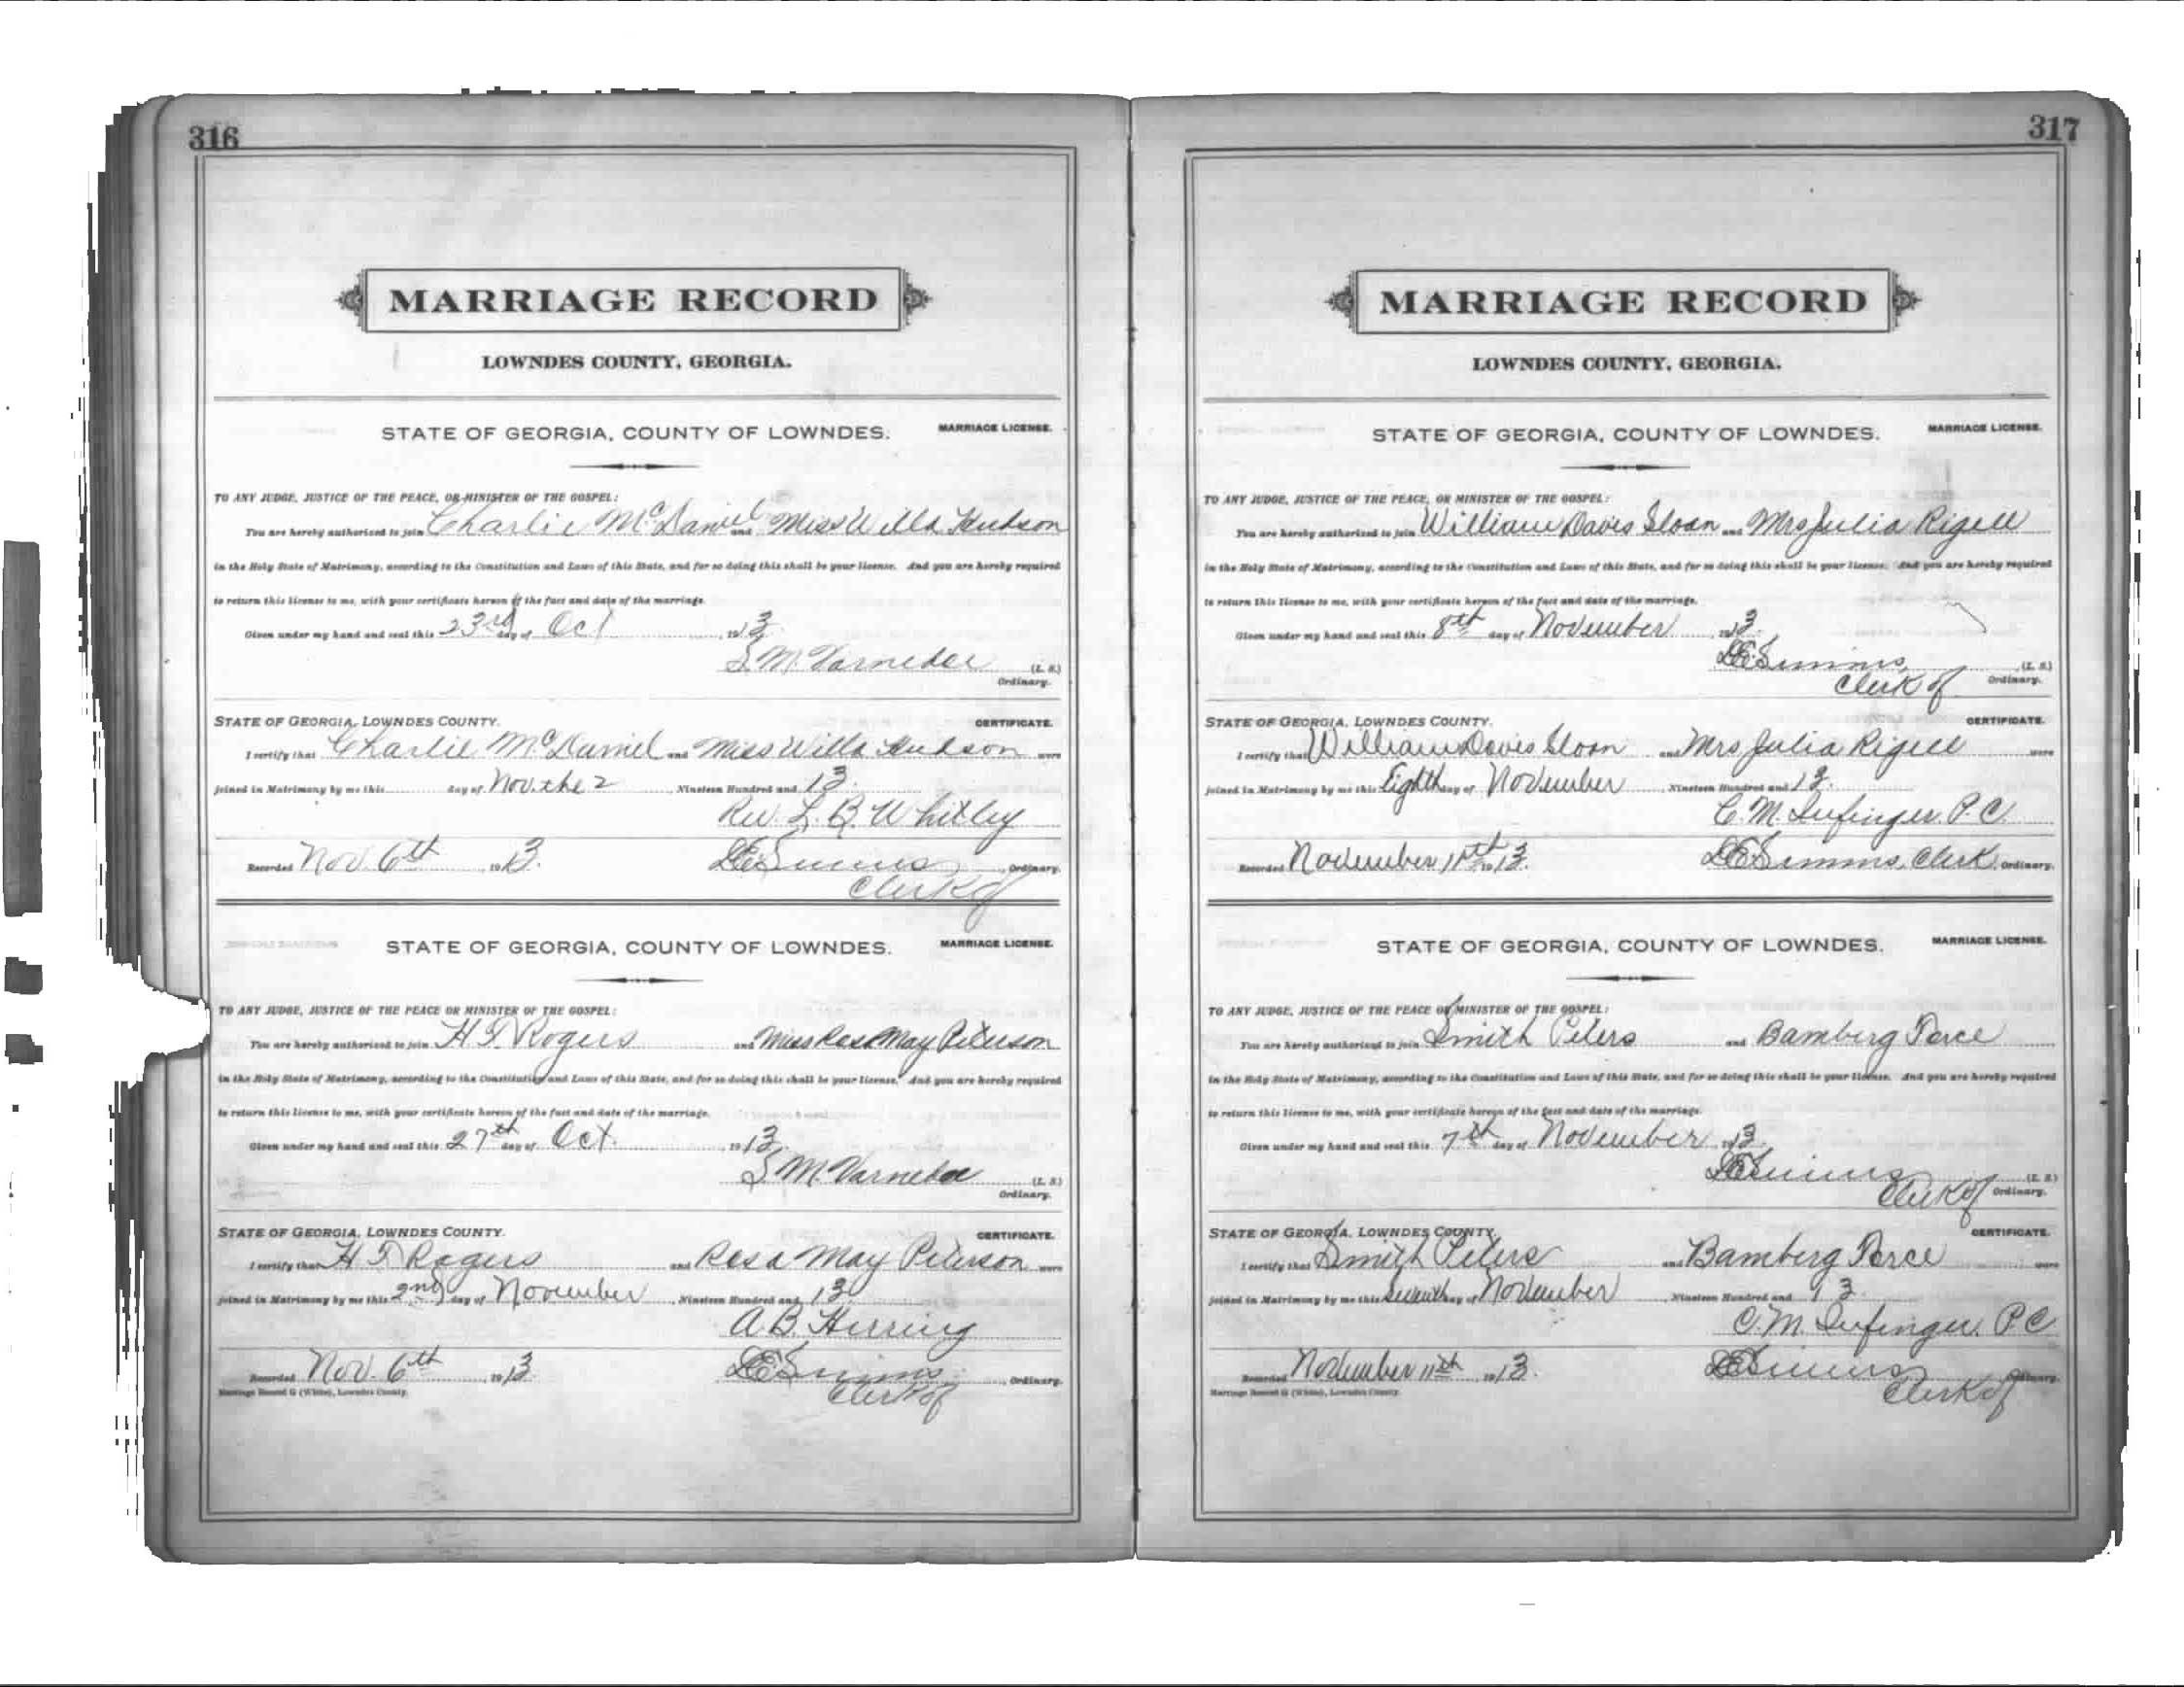 316
MARRIAGE RECORD
LOWNDES COUNTY, GEORGIA.
STATE OF GEORGIA, COUNTY OF LOWNDES. MARRIAGE LICENSE.
TO ANY JUDGE, JUSTICE OF THE PEACE, OR MINISTER OF THE GOSPEL:
You are hereby authorized to join Charlie McDaniel and Miss Willa Hudson
in the Holy State of Matrimony, according to the Constitution and Laws of this State, and for so doing this shall be your license. And you are hereby required
to return this license to me, with your certificate hereon of the fact and date of the marriage.
Given under my hand and seal this 23rd day of Oct , 1913
S. M. Varnedoe (L. S.)
Ordinary.
STATE OF GEORGIA, LOWNDES COUNTY. CERTIFICATE.
I certify that Charlie McDaniel and Miss Willa Hudson were
joined in Matrimony by me this day of Nov. the 2 , Nineteen Hundred and 13
Rev. L. B. Whitley
Recorded Nov. 6th , 1913. Simms , Ordinary.
Clerk of
STATE OF GEORGIA, COUNTY OF LOWNDES. MARRIAGE LICENSE.
TO ANY JUDGE, JUSTICE OF THE PEACE OR MINISTER OF THE GOSPEL:
You are hereby authorized to join H. T. Rogers and Miss Rosa May Peterson
in the Holy State of Matrimony, according to the Constitution and Laws of this State, and for so doing this shall be your license. And you are hereby required
to return this license to me, with your certificate hereon of the fact and date of the marriage.
Given under my hand and seal this 27th day of Oct. , 1913.
S. M. Varnedoe (L. S.)
Ordinary.
STATE OF GEORGIA, LOWNDES COUNTY. CERTIFICATE.
I certify that H. T. Rogers and Rosa May Peterson were
joined in Matrimony by me this 2nd day of November , Nineteen Hundred and 13
A. B. Herring
Recorded Nov. 6th , 1913 Simms , Ordinary.
Marriage Record G (White), Lowndes County. Clerk of
317
MARRIAGE RECORD
LOWNDES COUNTY, GEORGIA.
STATE OF GEORGIA, COUNTY OF LOWNDES. MARRIAGE LICENSE.
TO ANY JUDGE, JUSTICE OF THE PEACE, OR MINISTER OF THE GOSPEL:
You are hereby authorized to join William Davis Sloan and Mrs Julia Rigell
in the Holy State of Matrimony, according to the Constitution and Laws of this State, and for so doing this shall be your license. And you are hereby required
to return this license to me, with your certificate hereon of the fact and date of the marriage.
Given under my hand and seal this 8th day of November , 1913.
Simms, (L. S.)
Clerk of Ordinary.
STATE OF GEORGIA, LOWNDES COUNTY. CERTIFICATE.
I certify that William Davis Sloan and Mrs Julia Rigell were
joined in Matrimony by me this Eighth day of November , Nineteen Hundred and 13.
C. M. Infinger. P. C.
Recorded November 11th 1913. Simms, Clerk, Ordinary.
STATE OF GEORGIA, COUNTY OF LOWNDES. MARRIAGE LICENSE.
TO ANY JUDGE, JUSTICE OF THE PEACE OR MINISTER OF THE GOSPEL:
You are hereby authorized to join Smith Peters and Bamberg Perce
in the Holy State of Matrimony, according to the Constitution and Laws of this State, and for so doing this shall be your license. And you are hereby required
to return this license to me, with your certificate hereon of the fact and date of the marriage.
Given under my hand and seal this 7th day of November 1913.
Simms (L. S.)
Clerk of Ordinary.
STATE OF GEORGIA, LOWNDES COUNTY. CERTIFICATE.
I certify that Smith Peters and Bamberg Perce were
joined in Matrimony by me this Seventh day of November , Nineteen Hundred and 13
C. M. Infinger. P. C
Recorded November 11th 1913. Simms Ordinary.
Marriage Record G (White), Lowndes County. Clerk of